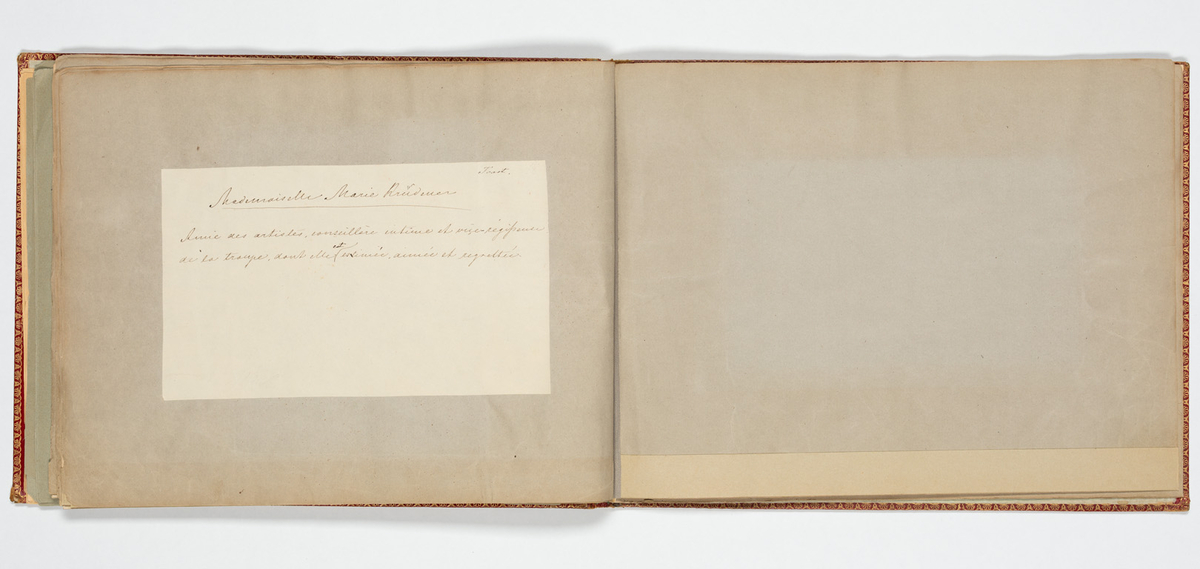 Mademoiselle Marie
Amie des artistes, conseillère intime et vice-régisseuse
de la troupe, dont elle est estimée, aimée et regrettée.